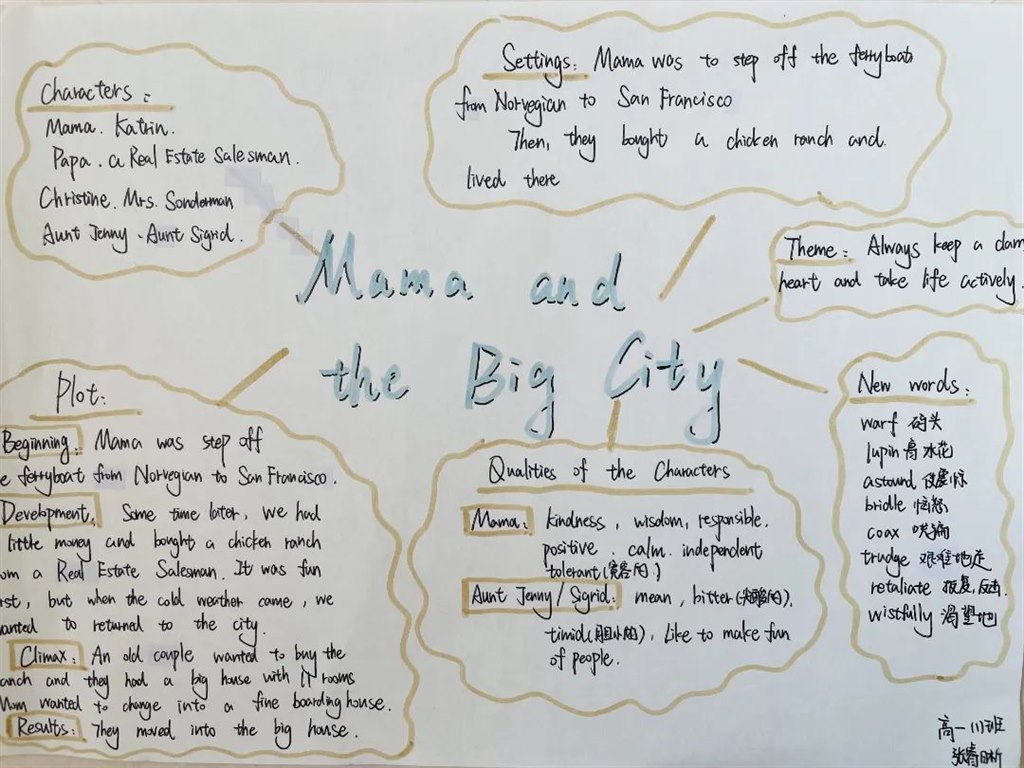 Characters:
Mama. Katrin.
Papa. a Real Estate Salesman.
Christine. Mrs. Sonderman
Aunt Jenny. Aunt Sigrid.
Settings: Mama was to step off the ferryboat
from Norvegian to San Francisco
Then, they bought a chicken ranch and
lived there
Mama and
the Big City
Theme: Always keep a
heart and take life actively.
Plot:
Beginning: Mama was step off
ferryboat from Norvegian to San Francisco.
Development: Some time later, we had
little money and bought a chicken ranch
a Real Estate Salesman. It was fun
but when the cold weather came, we
to returned to the city.
Climax: An old couple wanted to buy the
and they had a big house with rooms
Mom wanted to change into a fine boarding house.
Results: They moved into the big house.
Qualities of the Characters
Mama: kindness, wisdom, responsible.
positive. calm. independent
tolerant(宽容的)
Aunt Jenny/Sigrid: mean, bitter
timid(胆小的), Like to make fun
of people.
New words:
warf 码头
lupin 扇水花
astound 使震惊
bridle 恼怒
coax 哄骗
trudge 艰难地走
retaliate 报复,反击
wistfully 渴望地
高一 班
张